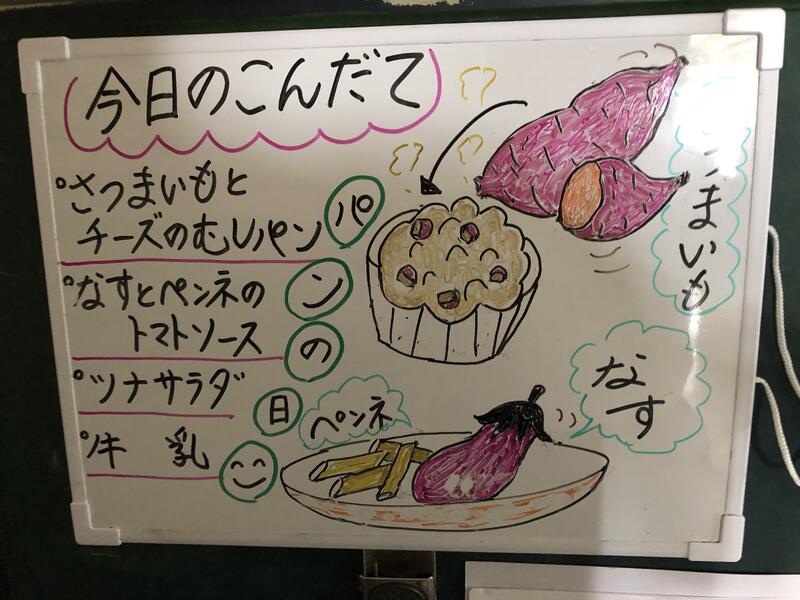 今日のこんだて
さつまいもと
チーズのむしパン
なすとペンネの
トマトソース
ツナサラダ
牛乳
パンの日
つまいも
ペンネ
なす